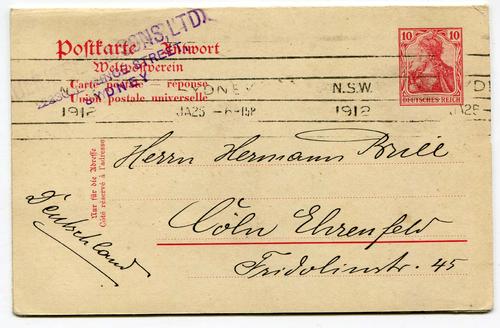 SONS, LTD.
STREET
SYDNEY
Postkarte Antwort
Weltpostverein
Carte postale réponse
Union postale universelle
10 10
DEUTSCHES REICH
SYDNEY N.S.W.
1912 JA25 -6-15P 1912 JA25
Nur für die Adresse
Côté réservé à l'adresse
Herrn Hermann Brill
Cöln Ehrenfeld
Fridolinstr. 45
Deutschland